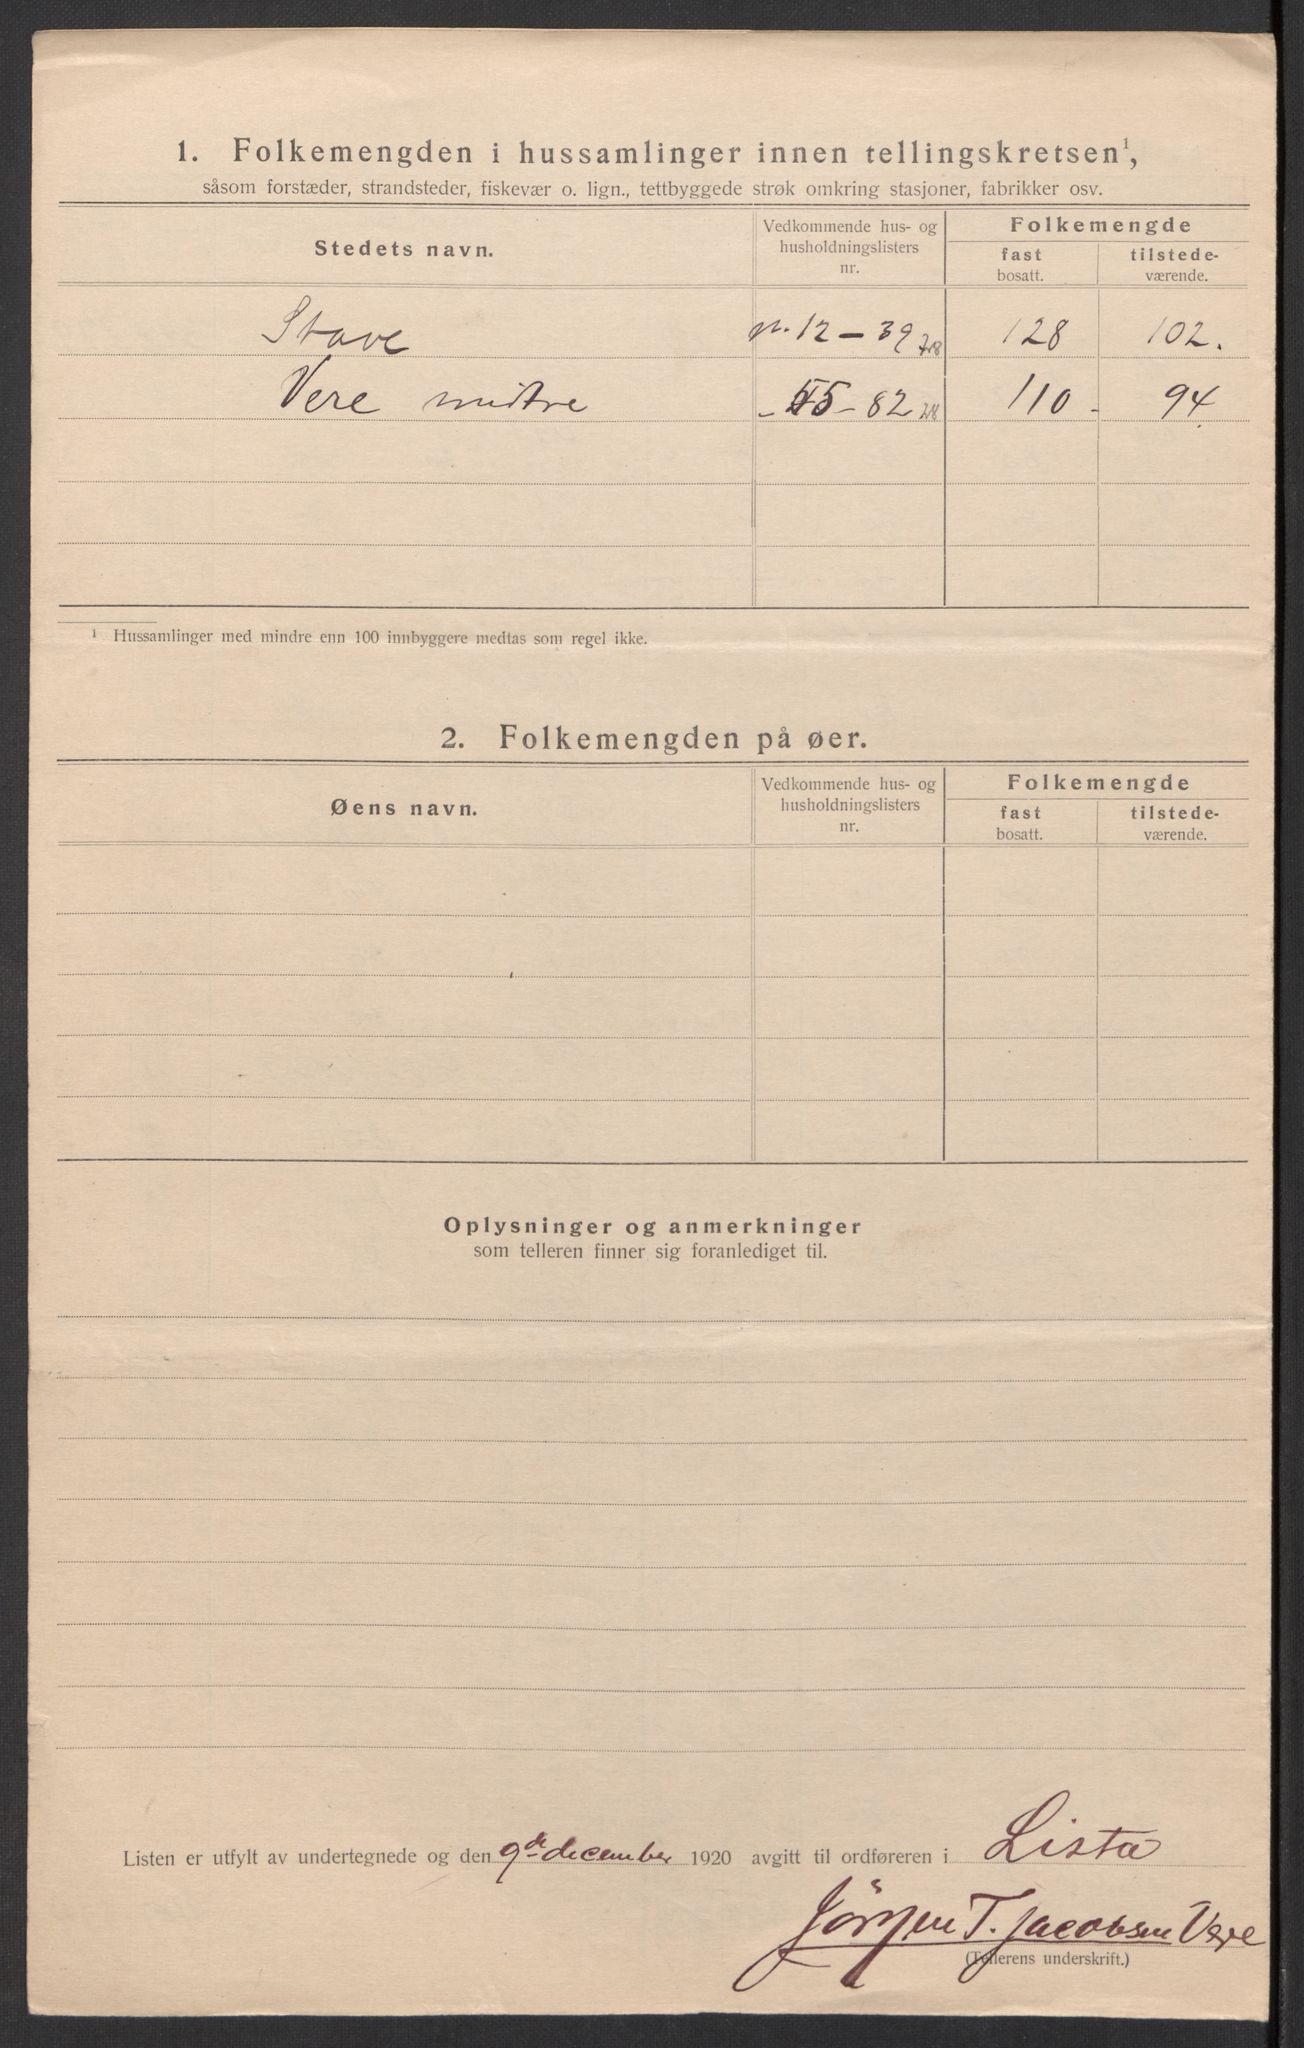 1. Folkemengden i hussamlinger innen tellingskretsen¹,
såsom forstæder, strandsteder, fiskevær o. lign., tettbyggede strøk omkring stasjoner, fabrikker osv.
Stedets navn.
Vedkommende hus- og
husholdningslisters
nr.
Folkemengde
fast
bosatt.
tilstede-
værende.
Stave n. 12 – 39 128 102.
Vere midtre – 55 – 82 110 – 94
¹ Hussamlinger med mindre enn 100 innbyggere medtas som regel ikke.
2. Folkemengden på øer.
Øens navn.
Vedkommende hus- og
husholdningslisters
nr.
Folkemengde
fast
bosatt.
tilstede-
værende.
Oplysninger og anmerkninger
som telleren finner sig foranlediget til.
Listen er utfylt av undertegnede og den 9de december 1920 avgitt til ordføreren i Lista
Jörgen T. Jacobsen Vere
(Tellerens underskrift.)